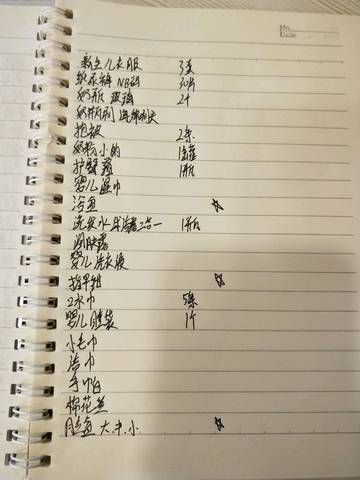 No.
Date
新生儿衣服 3套
纸尿裤 NB码 30片
奶瓶 玻璃 2个
奶瓶刷
抱被 2条
奶粉小的 1罐
护臀膏 1瓶
婴儿湿巾
浴盆 ☆
洗发水 沐浴露二合一 1瓶
润肤露
婴儿洗衣液
指甲钳 ☆
口水巾 5条
婴儿睡袋 1个
小毛巾
浴巾
手帕
棉花签
脸盆 大.中.小 ☆